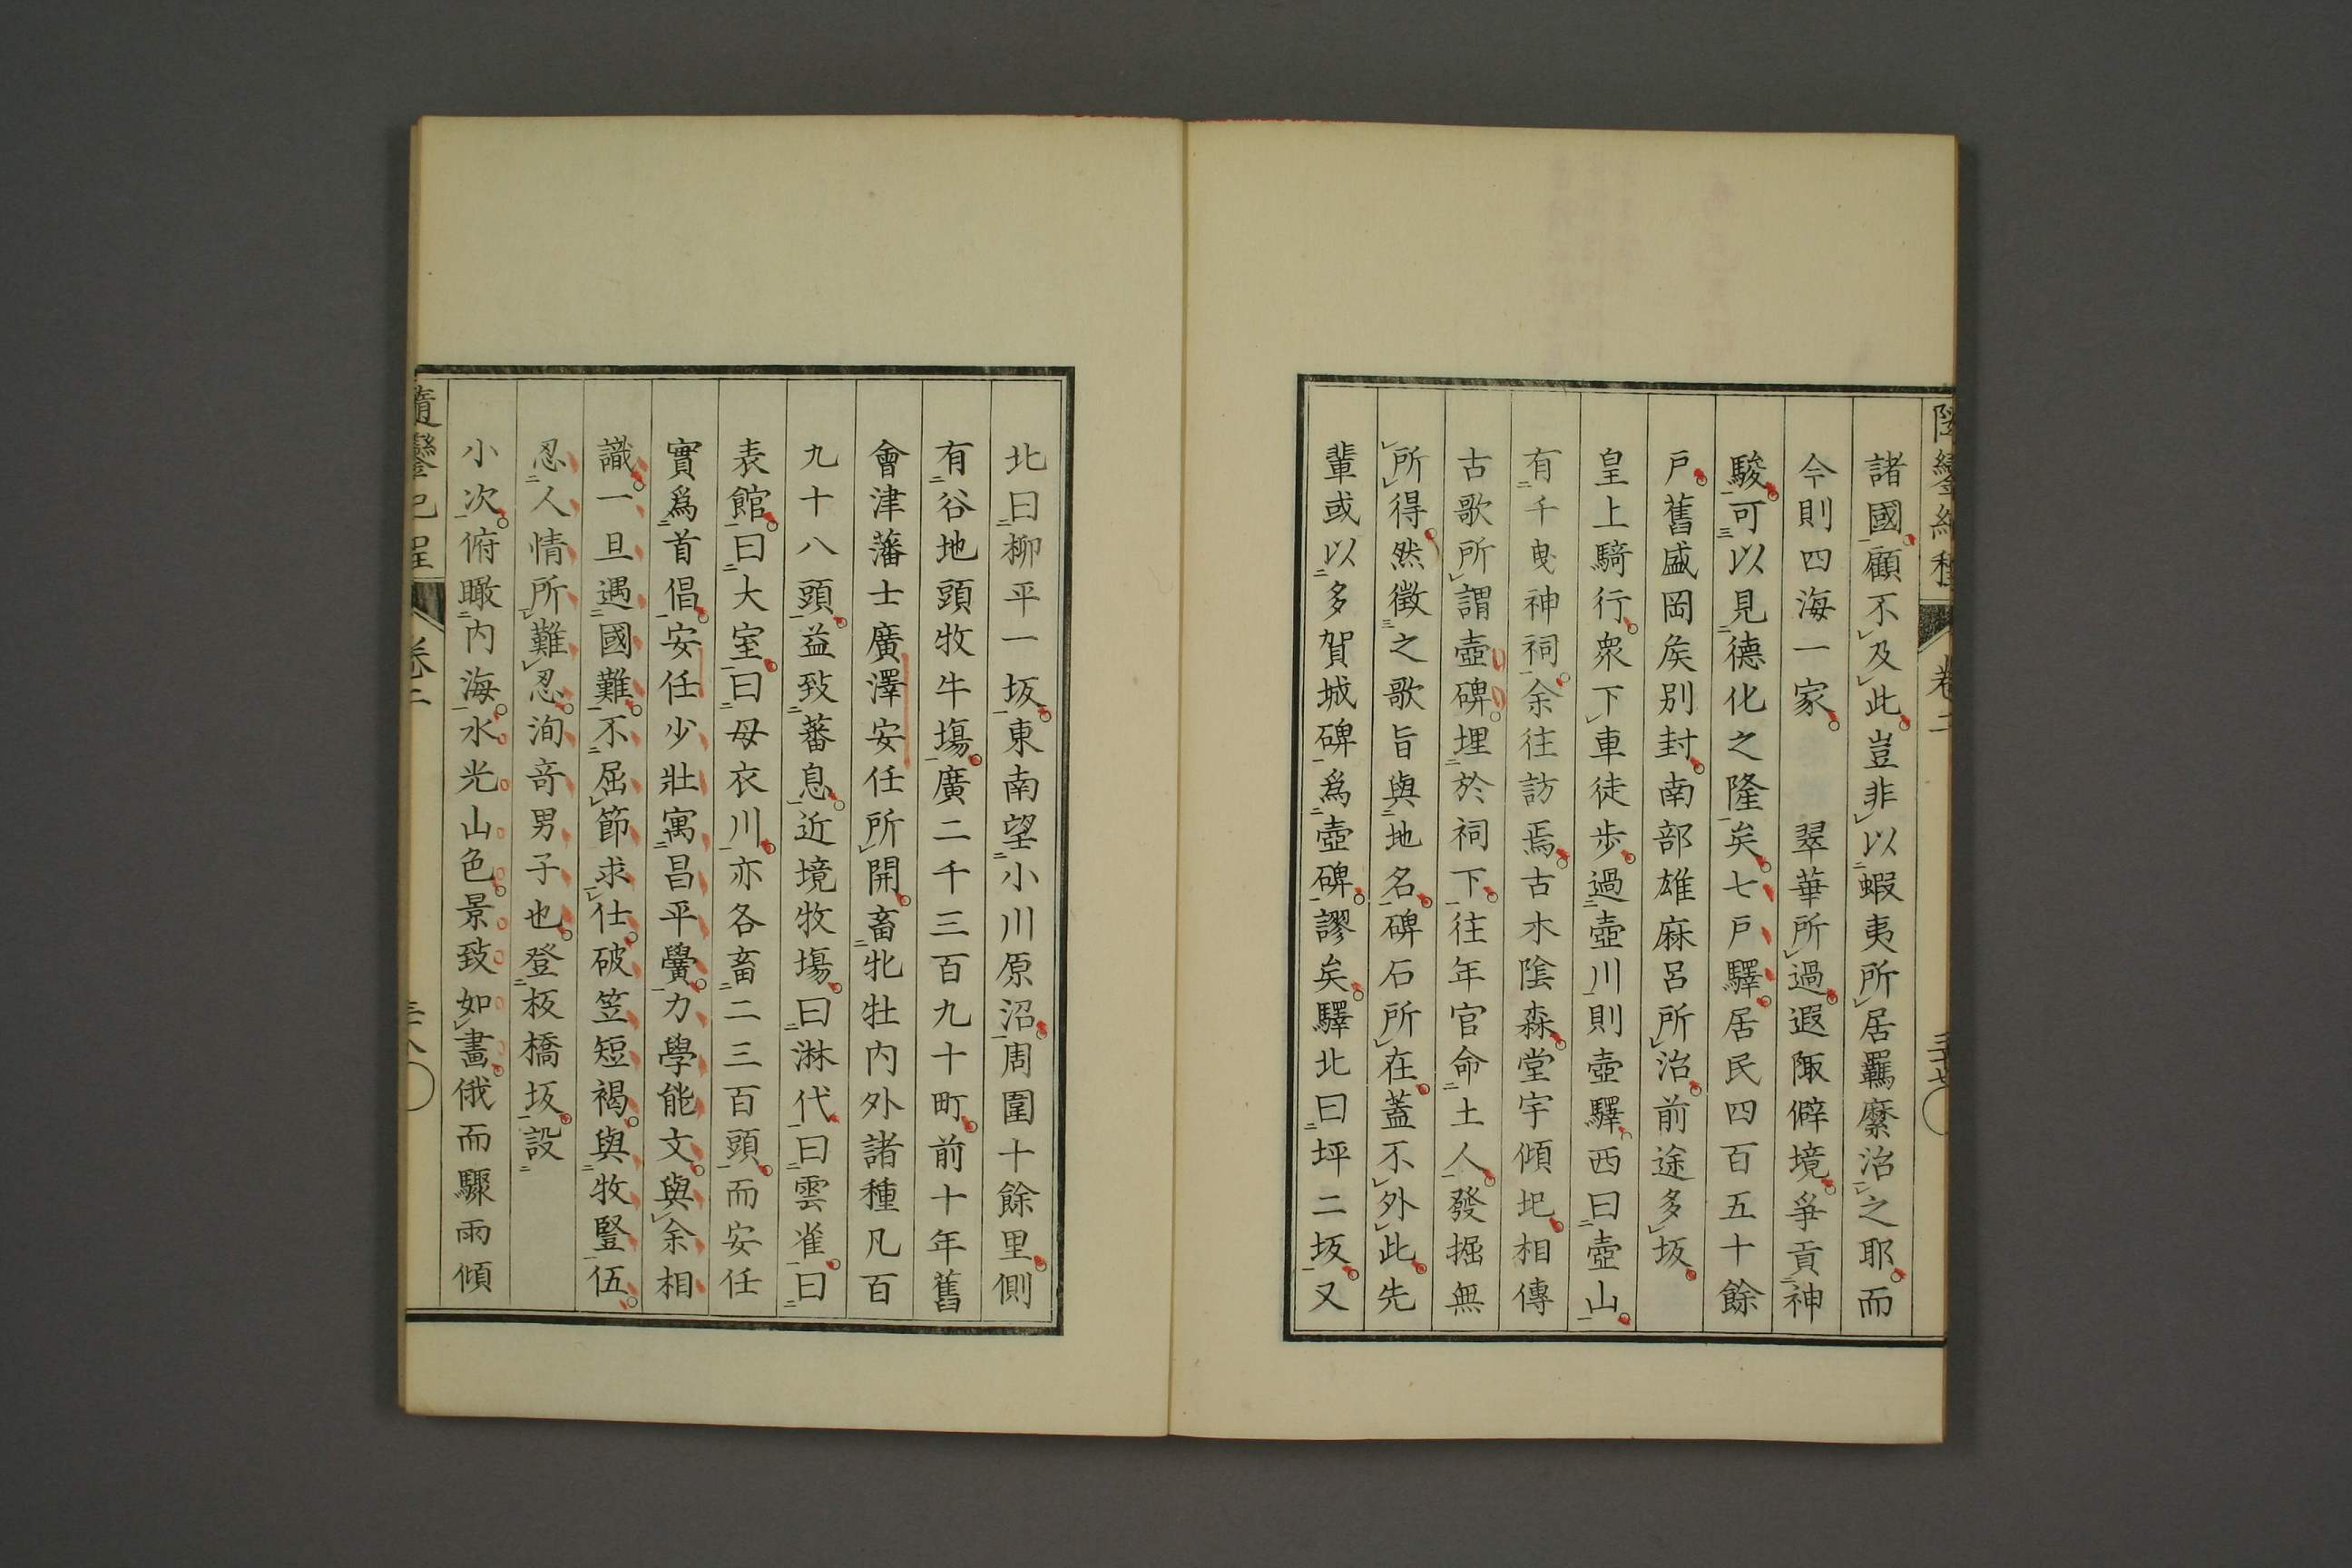 諸國顧不及此豈非以蝦夷所居羈縻治之耶而
今則四海一家 翠華所過遐陬僻境爭貢神
駿可以見德化之隆矣七戶驛居民四百五十餘
戶舊盛岡矦別封南部雄麻呂所治前途多坂
皇上騎行衆下車徒歩過壺川則壺驛西曰壺山
有千曳神祠余往訪焉古木陰森堂宇傾圯相傳
古歌所謂壺碑埋於祠下往年官命土人發掘無
所得然徵之歌旨與地名碑石所在蓋不外此先
輩或以多賀城碑爲壺碑謬矣驛北曰坪二坂又
北曰柳平一坂東南望小川原沼周圍十餘里側
有谷地頭牧牛塲廣二千三百九十町前十年舊
會津藩士廣澤安任所開畜牝牡内外諸種凡百
九十八頭益致蕃息近境牧塲曰淋代曰雲雀曰
表館曰大室曰母衣川亦各畜二三百頭而安任
實爲首倡安任少壯寓昌平黌力學能文與余相
識一旦遇國難不屈節求仕破笠短褐與牧豎伍
忍人情所難忍洵竒男子也登板橋坂設
小次俯瞰内海水光山色景致如畫俄而驟雨傾
隨鑾紀程 卷二 三十八